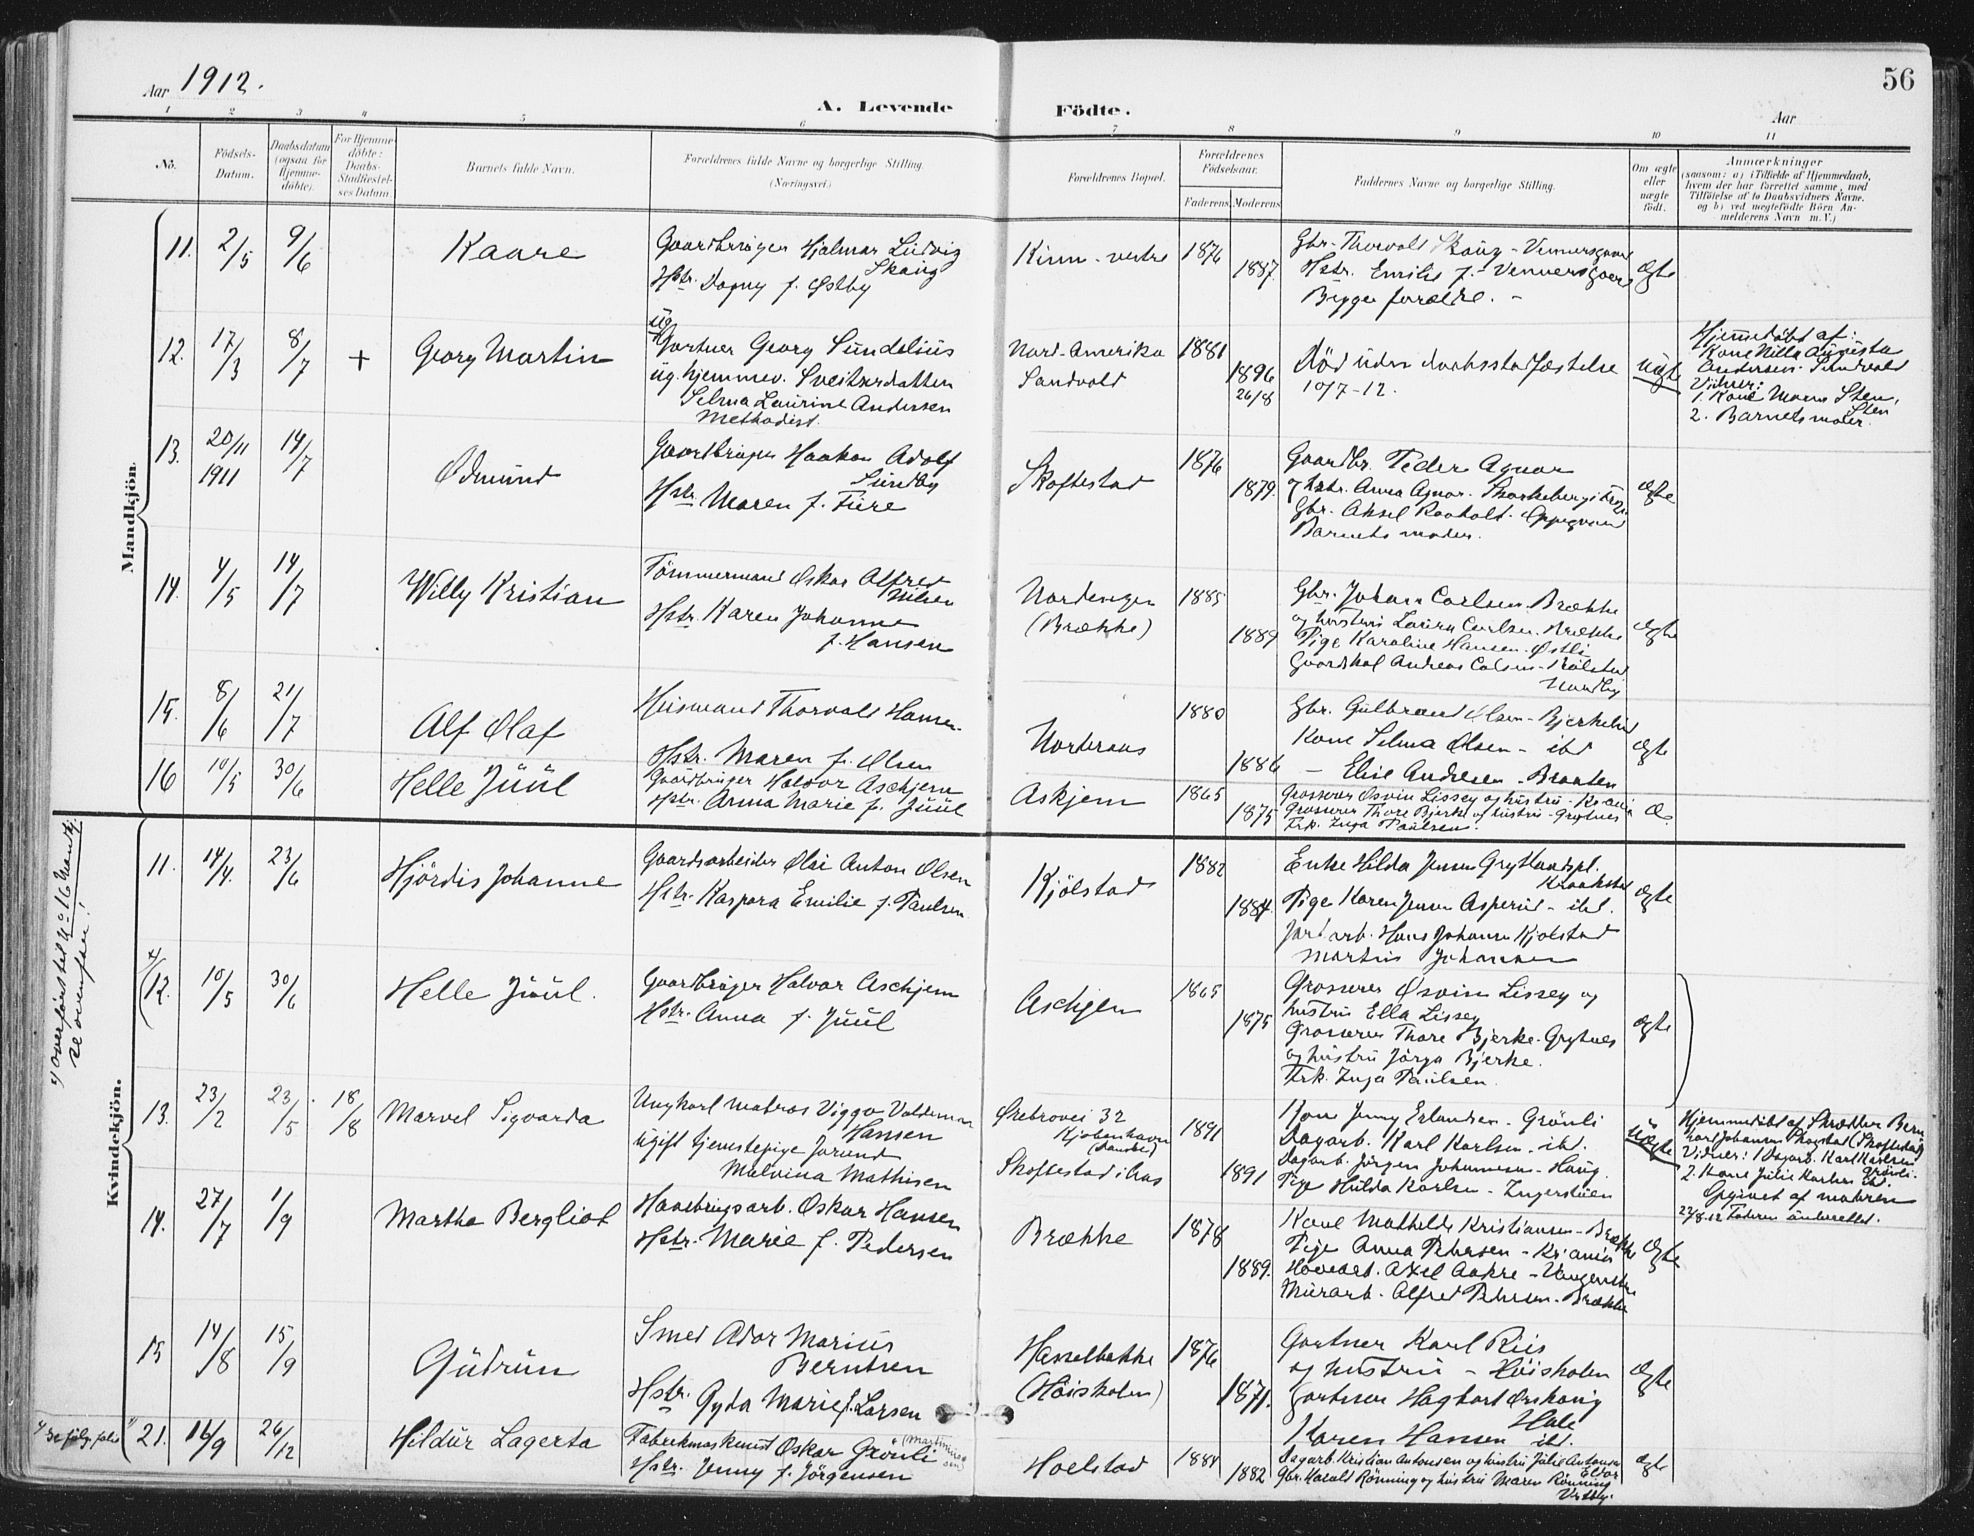 Aar 1912.
A. Levende Födte.
56
Aar
1 2 3 4 5 6 7 8 9 10 11
No.
Födsels-Datum.
Daabsdatum (ogsaa for Hjemmedöbte).
For Hjemmedöbte: Daabs-Stadfæstelses Datum.
Barnets fulde Navn.
Forældrenes fulde Navne og borgerlige Stilling. (Næringsvei.)
Forældrenes Bopæl.
Forældrenes Födselsaar.
Faderens. Moderens.
Faddernes Navne og borgerlige Stilling.
Om ægte eller uægte födt.
Anmærkninger
(saasom: a) i Tilfælde af Hjemmedaab, hvem der har forrettet samme, med Tilföielse af to Daabsvidners Navne. og b) ved uegtefödte Börn Anmelderens Navn m. V.)
Mandkjön.
11. 2/5 9/6 Kaare
Gaardbruger Hjalmar Ludvig
Skaug
Hstr. Dagny f. Østby
Kinn - vestre 1876
1887.
Gbr. Thorvald Skaug - Vennersgaard
Hstr. Emilie f.
Begge forældre. -
ægte
12. 17/3 8/7 + Georg Martin
ug.
Gartner Georg Sundelius
ug. hjemmev. Sveitserdatter
Selma Laurine Andersen
Methodist.
Nord-Amerika
Sandvold
1881
1896
26/8
Död uden daabsstadfæstelse
10/7-12.
uægte
Hjemmedöbt af:
Kone Milla Augusta
Andersen. Sandvold
Vidner:
1. Kone Maren Sten,
Sten
2. Barnets moder.
13. 20/11 1911 14/7 Ødmund
Gaardbruger Haakon Adolf
Sundby
Hstr. Maren f. Fure
Skoftestad 1876
1879.
Gaardbr. Peder Agnor
Hstr. Anna Agnor.
Gbr. Aksel Raaholt. Oppegaard
Barnets moder.
ægte
14. 4/5 14/7 Willy Kristian
Tömmermand Oskar Alfred
Nilsen
Hstr. Karen Johanne
f. Hansen
Nordengen
(Brække)
1885
1889
Gbr. Johan Carlsen. Brække
og hustru Laura Carlsen. Brække
Pige Karoline Hansen. Østli
Gaardskal Andreas
Nordby
ægte
15. 8/6 21/7 Alf Olaf
Husmand Thorvald Hansen.
Hstr. Maren f. Olsen
Norderaas
1880
1886
Gbr. Gulbrand Olsen - Bjerkelund
Kone Selma Olsen - ibd
- Elise Andresen - Braaten
ægte
16 10/5 30/6 Helle Júúl
Gaardbruger Halvor Aschjem
Hstr. Anna Marie f. Júúl
Askjem 1865
1875
Grosserer Osvin Lissey og hustru - Kr.ania
Grosserer Thore Bjerke og hustru - Grytnes
Frk. Inga Paulsen.
Æ.
Kvindekjön.
x/ overförstet No 16 Mandkj.
se ovenfor!
11. 14/4. 23/6 Hjördis Johanne
Gaardsarbeider Olai Anton Olsen
Hstr. Kaspara Emilie f. Paulsen
Kjölstad 1882
1884.
Enke Hilda Jensen Grytlandspl.
Kraakstad
Pige Karen Jensen Asperud - ibd.
Jordarb. Hans Johansen Kjölstad
Martin Johansen
ægte
x/ (12. 10/5 30/6 Helle Júúl.
Gaardbruger Halvor Aschjem
Hstr. Anna f. Júúl
Aschjem 1865
1875
Grosserer Osvin Lissey og
hustru Ella Lissey
Grosserer Thore Bjerke. Grytnes
og hustru Jörga Bjerke.
Frk. Inga Paulsen.
ægte
13. 23/2 23/5 18/8 Marvel Sigvarda
Ungkarl matros Viggo Valdemar
Hansen
ugift tjenestepige Jorund
Malvina Mathisen
Ørebrovei 32
Kjöbenhavn
(Danske)
Skoftestad i Aas
1891
1891
Kone Jenny Erlandsen - Grönli
Dagarb. Karl Karlsen - ibd.
Dagarb. Jörgen Johannesen - Haug
Pige Hilda Karlsen - Ingerstuen
uægte
Hjemmedöbt af Skrædder Bern
hard Johansen Skogstad (Skoftestad)
Vidner: 1 Dagarb. Karl Karlsen
Grönli.
2. Kone Julie Karlsen ibd.
Opgivet af moderen
22/8.12 Faderen underrettet.
14. 27/7 1/9 Martha Bergliot
Havebrugsarb. Oskar Hansen
Hstr. Marie f. Pedersen
Brække 1878
1889.
Kone Mathilde Kristiansen - Brække
Pige Anna Pedersen - Kr.ania
Havearb. Axel Aakre -
Murarb. Alfred Pedersen - Brække
ægte
15 14/8 15/9 Gúdrún
Smed Ador Marius
Berntsen
Hstr. Gyda Marie f. Larsen
Hasselbakke
(Höiskolen)
1876
1871.
Gartner Karl Riis
og hustru - Höiskolen
Gartner Hagbart Ørskaug
Hole
Karen Hansen ibd.
ægte
x/ se fölg. folio
21. 16/9 26/12 Hildúr Lagerta
Fabrikmaskinist Oskar Grönli (Martiniussen)
Hstr. Jenny f. Jörgensen
Holstad 1884
1882
Dagarb. Kristian Antonsen og hustru Julie Antonsen
Eldor
Gbr. Harald Rönning og hustru Maren Rönning
Vestby.
ægte